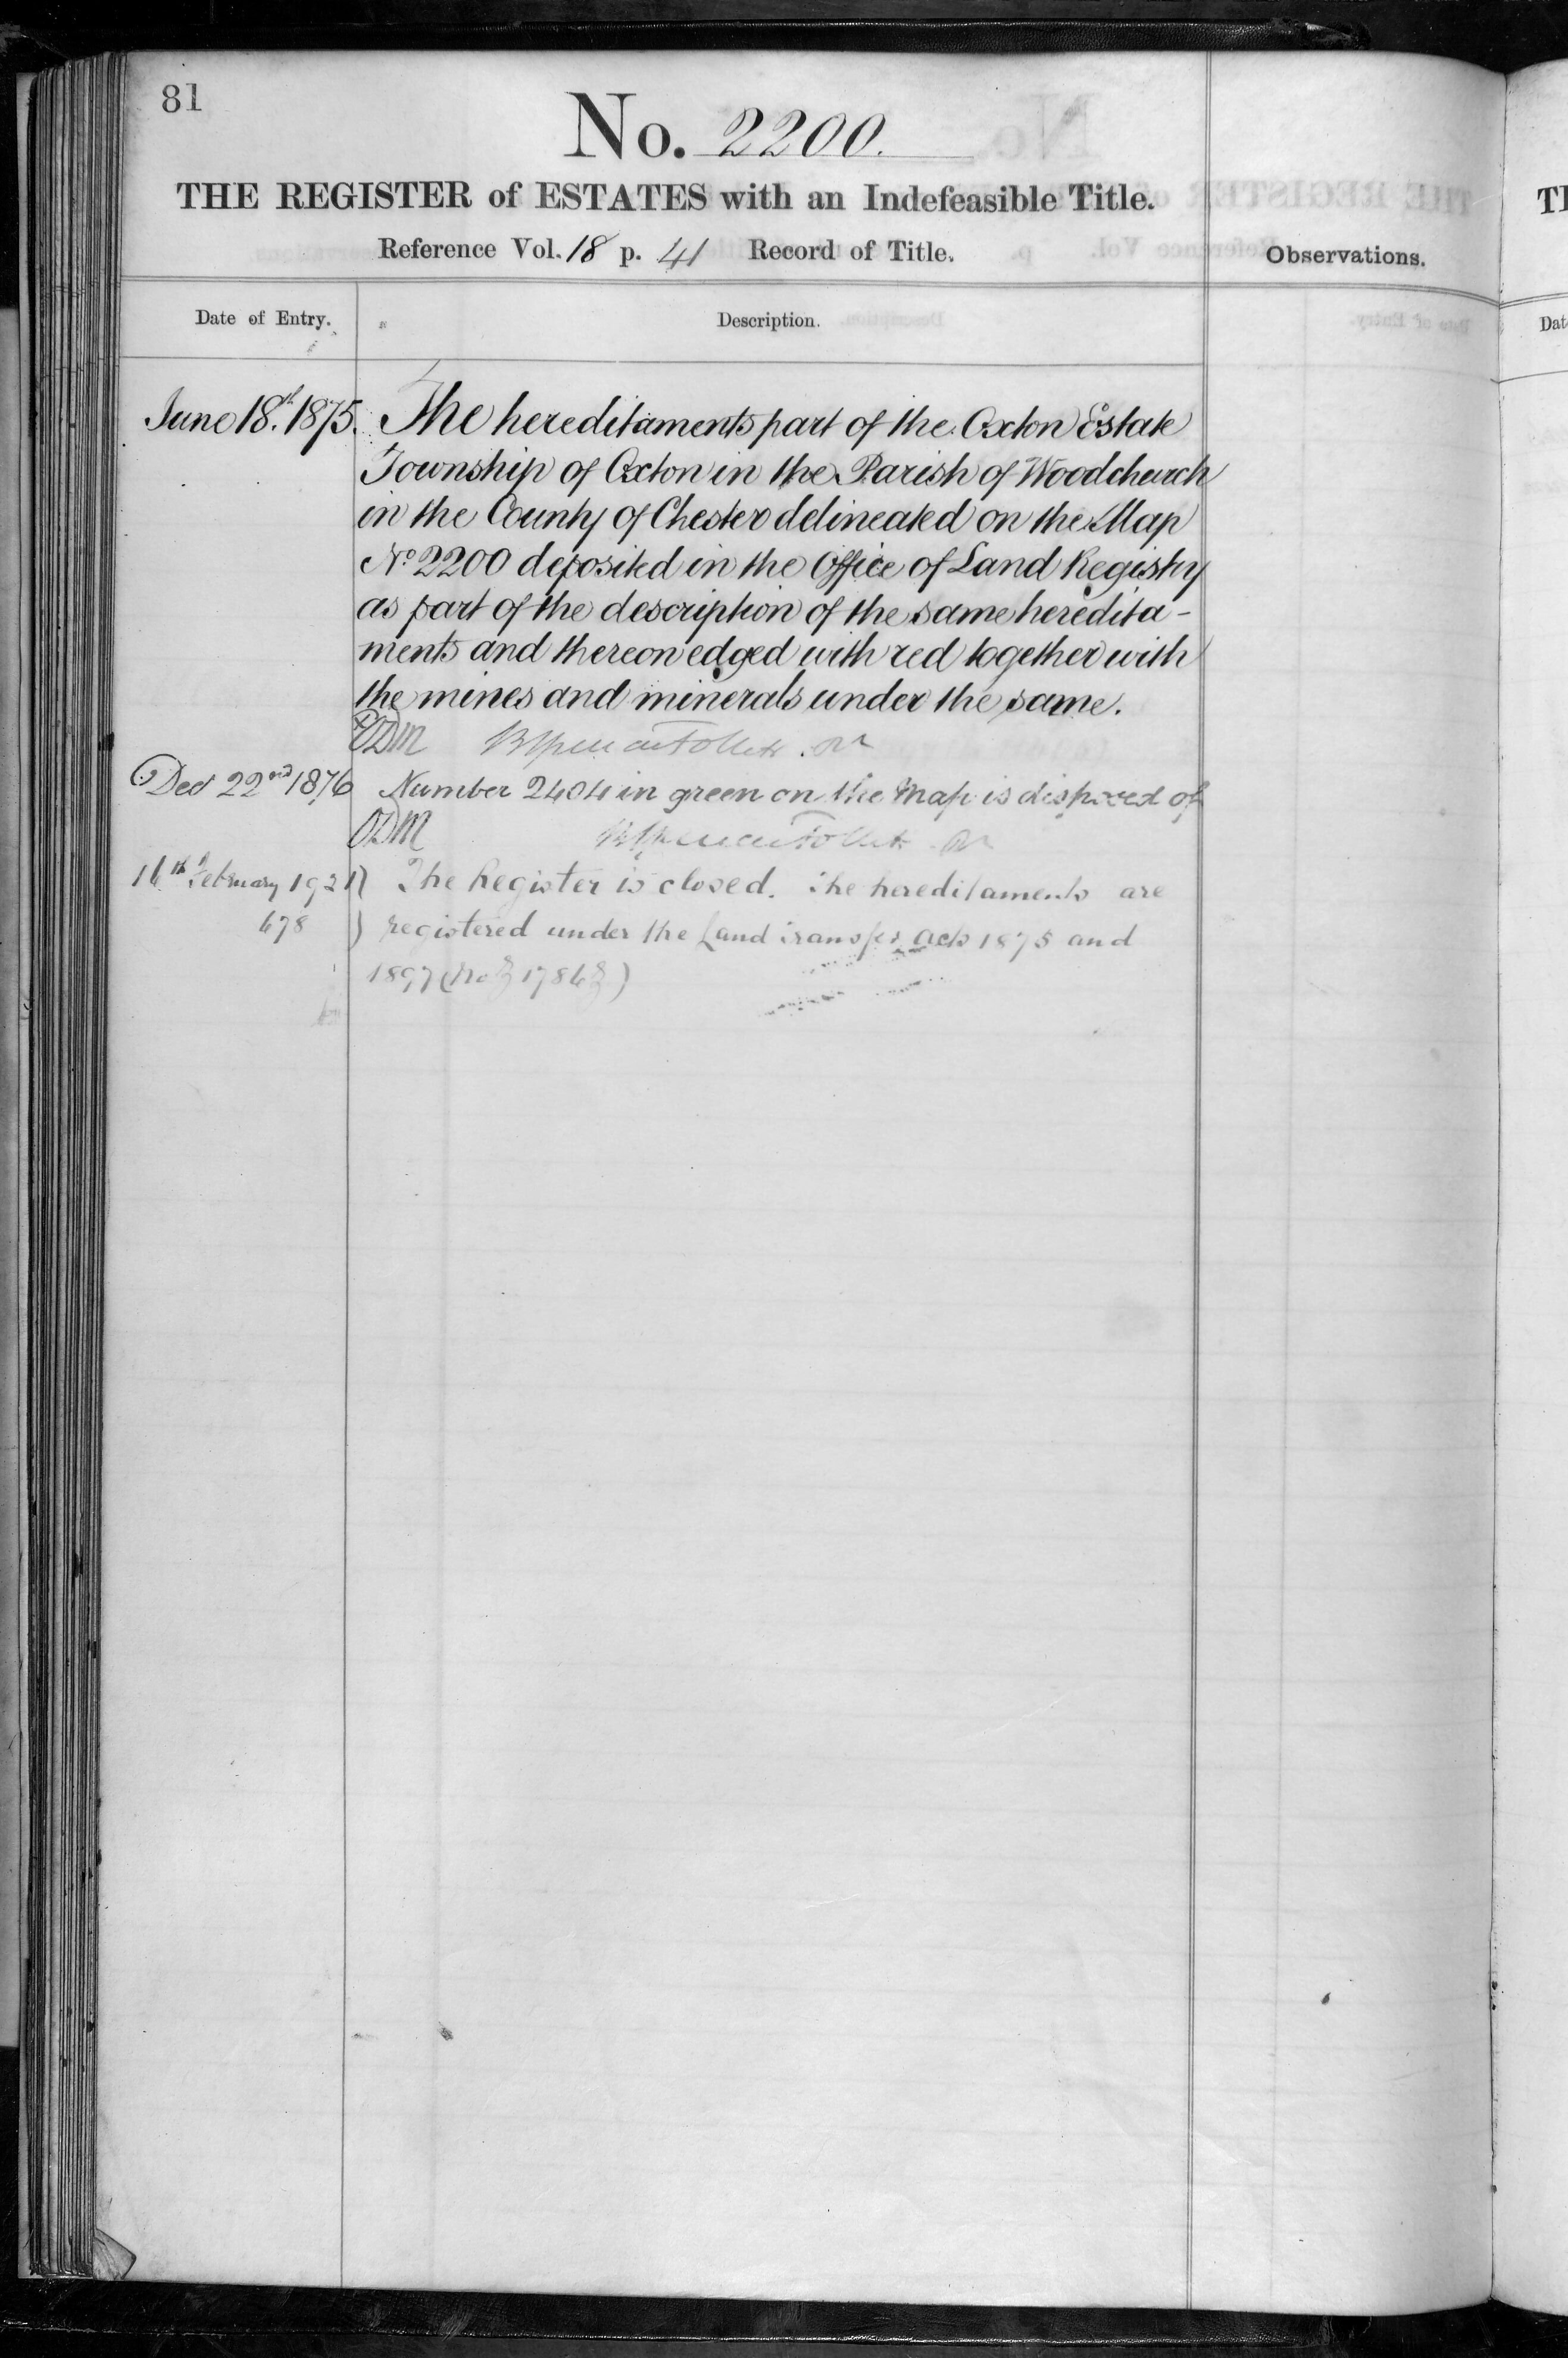 81
No. 2200.
THE REGISTER of ESTATES with an Indefeasible Title.
Reference Vol. 18 p. 41 Record of Title.
Observations.
Date of Entry.
Description.
June 18th. 1875. The hereditaments part of the Oxton Estate
Township of Oxton in the Parish of Woodchurch
in the County of Chester delineated on the Map
No 2200 deposited in the Office of Land Registry
as part of the description of the same heredita-
ments and thereon edged with red together with
the mines and minerals under the same.
ODM
Dec 22nd 1876 Number 2404 in green on the Map is disposed of
ODM
16th February 1921) The Register is closed. The hereditaments are
678 ) registered under the Land Transfer Acts 1875 and
1897 (No